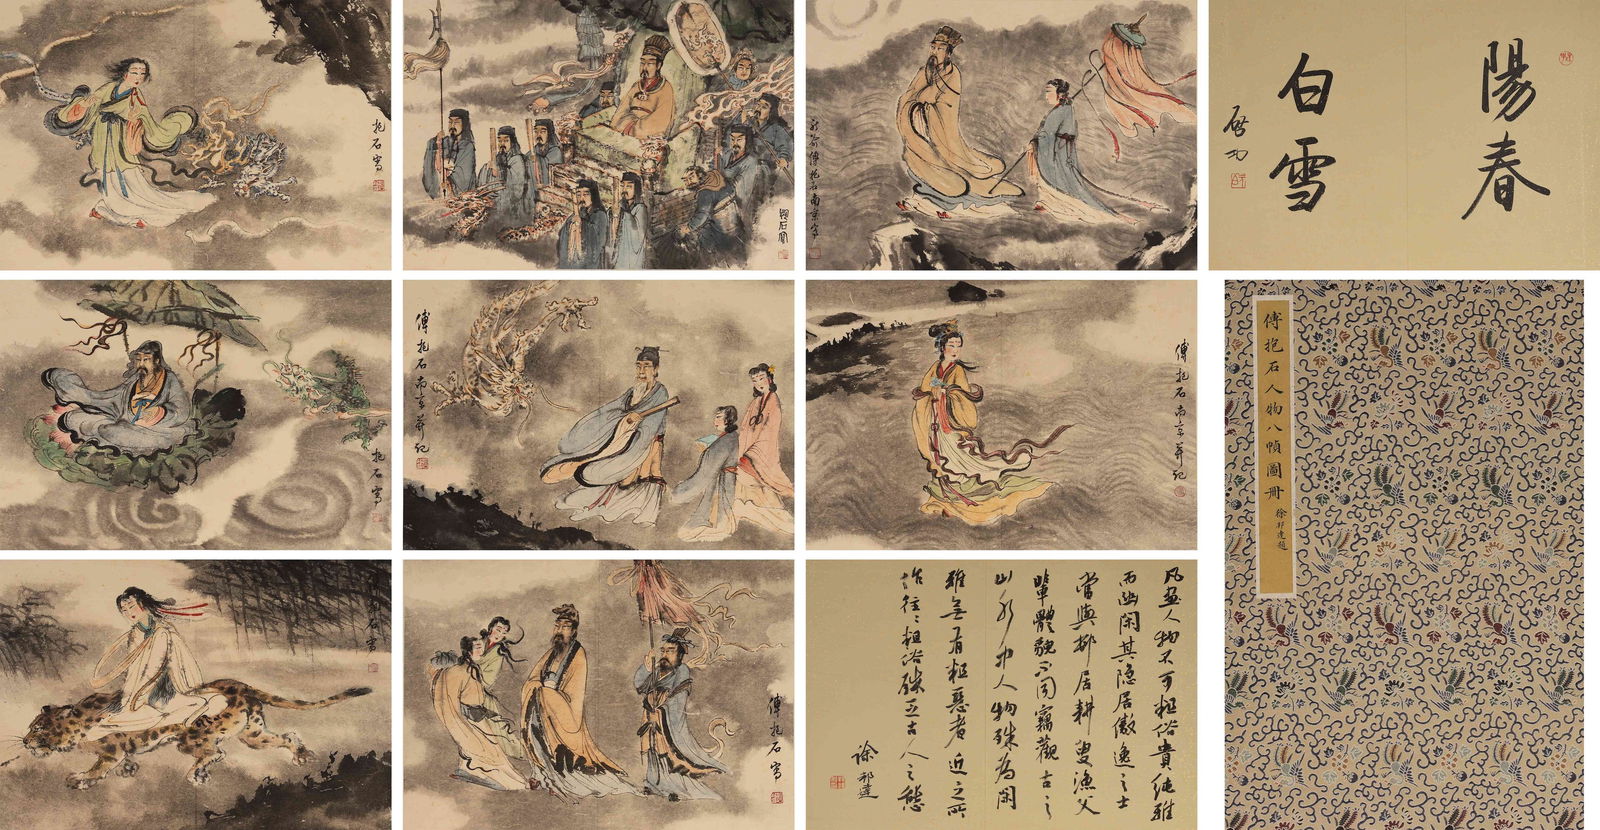 抱石寫
抱石寫
新喻傅抱石南京寫
陽春
白雪
啓功
抱石寫
傅抱石南京并記
傅抱石南京并記
傅抱石人物八幀圖冊
徐邦達題
抱石寫
傅抱石寫
凡畫人物不可粗俗貴純雅
而幽閑其隐居傲逸之士
當與邨居耕叟漁父
輩體貌不同竊觀古之
山水中人物殊為閑
雅無有粗惡者近之所
作往〻粗俗殊乏古人之態
徐邦達